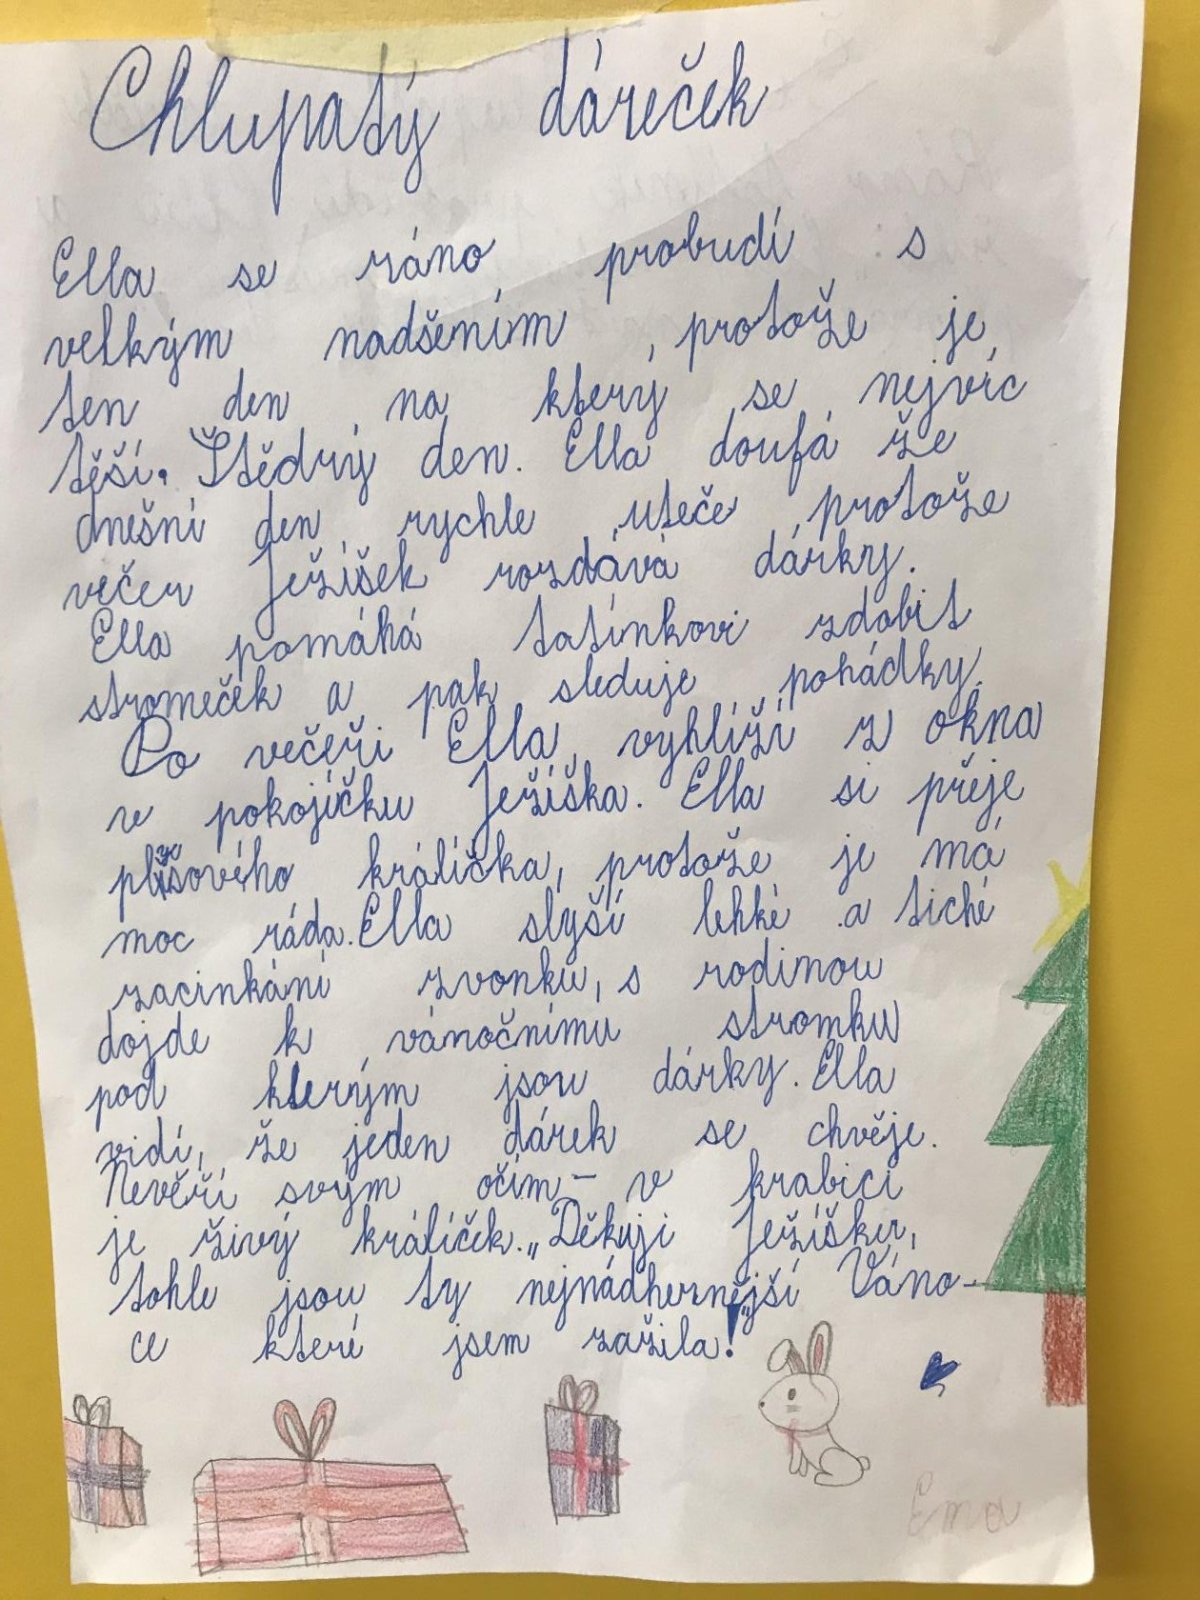 Chlupatý dáreček
Ella se ráno probudí s
velkým nadšením, protože je
ten den na který se nejvíc
těší. Štědrý den. Ella doufá že
dnešní den rychle uteče, protože
večer Ježíšek rozdává dárky.
Ella pomáhá tatínkovi zdobit
stromeček a pak sleduje pohádky.
Po večeři Ella vyhlíží z okna
v pokojíčku Ježíška. Ella si přeje
plyšového králíčka, protože je má
moc ráda. Ella slyší lehké a tiché
zacinkání zvonku, s rodinou
dojde k vánočnímu stromku
pod kterým jsou dárky. Ella
vidí, že jeden dárek se chvěje.
Nevěří svým očím – v krabici
je živý králíček. „Děkuji Ježíšku,
tohle jsou ty nejnádhernější Váno-
ce které jsem zažila!"
Ema